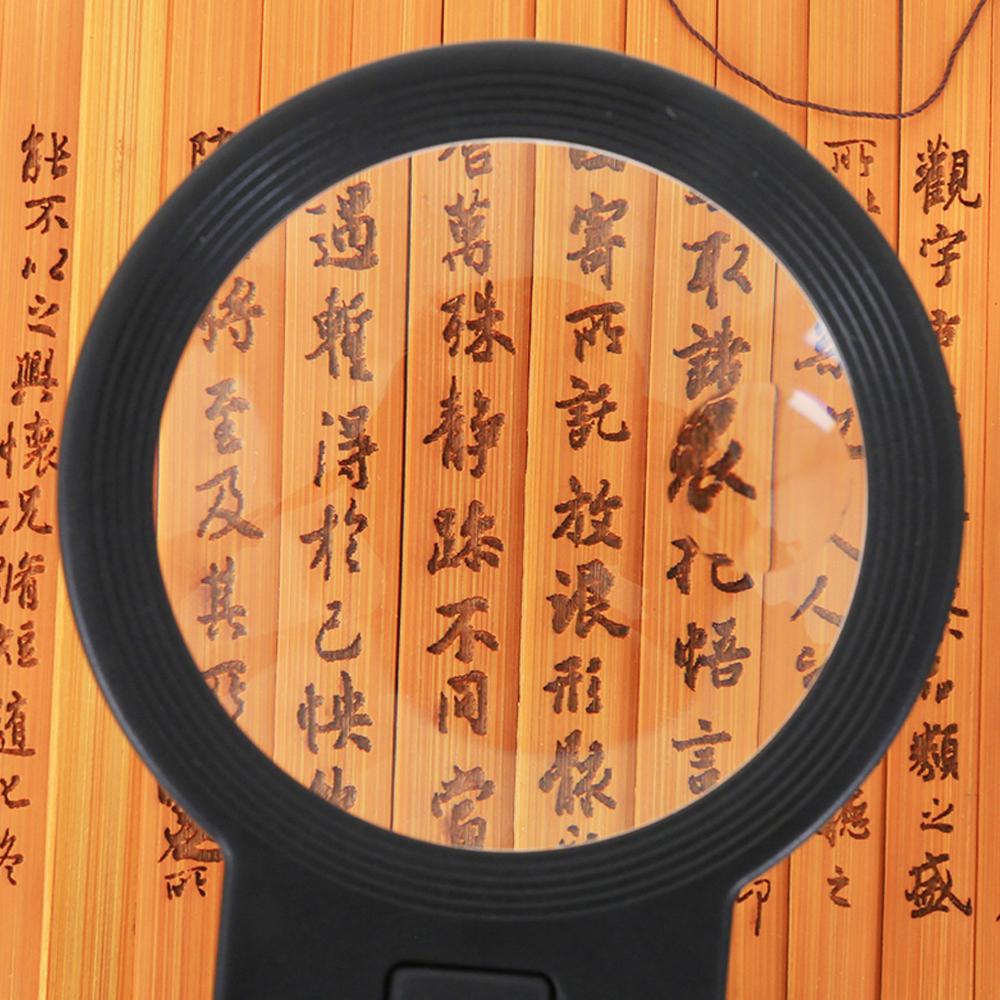 觀宇 類之盛
所 人 之
取諸懷抱悟言
寄所託放浪形骸
萬殊靜躁不同當
遇暫得於己怏
將至及其所 所
能不以之興懷況脩短隨化終